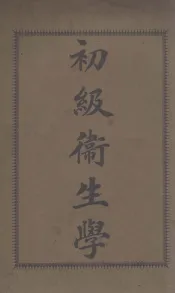 初級衛生學